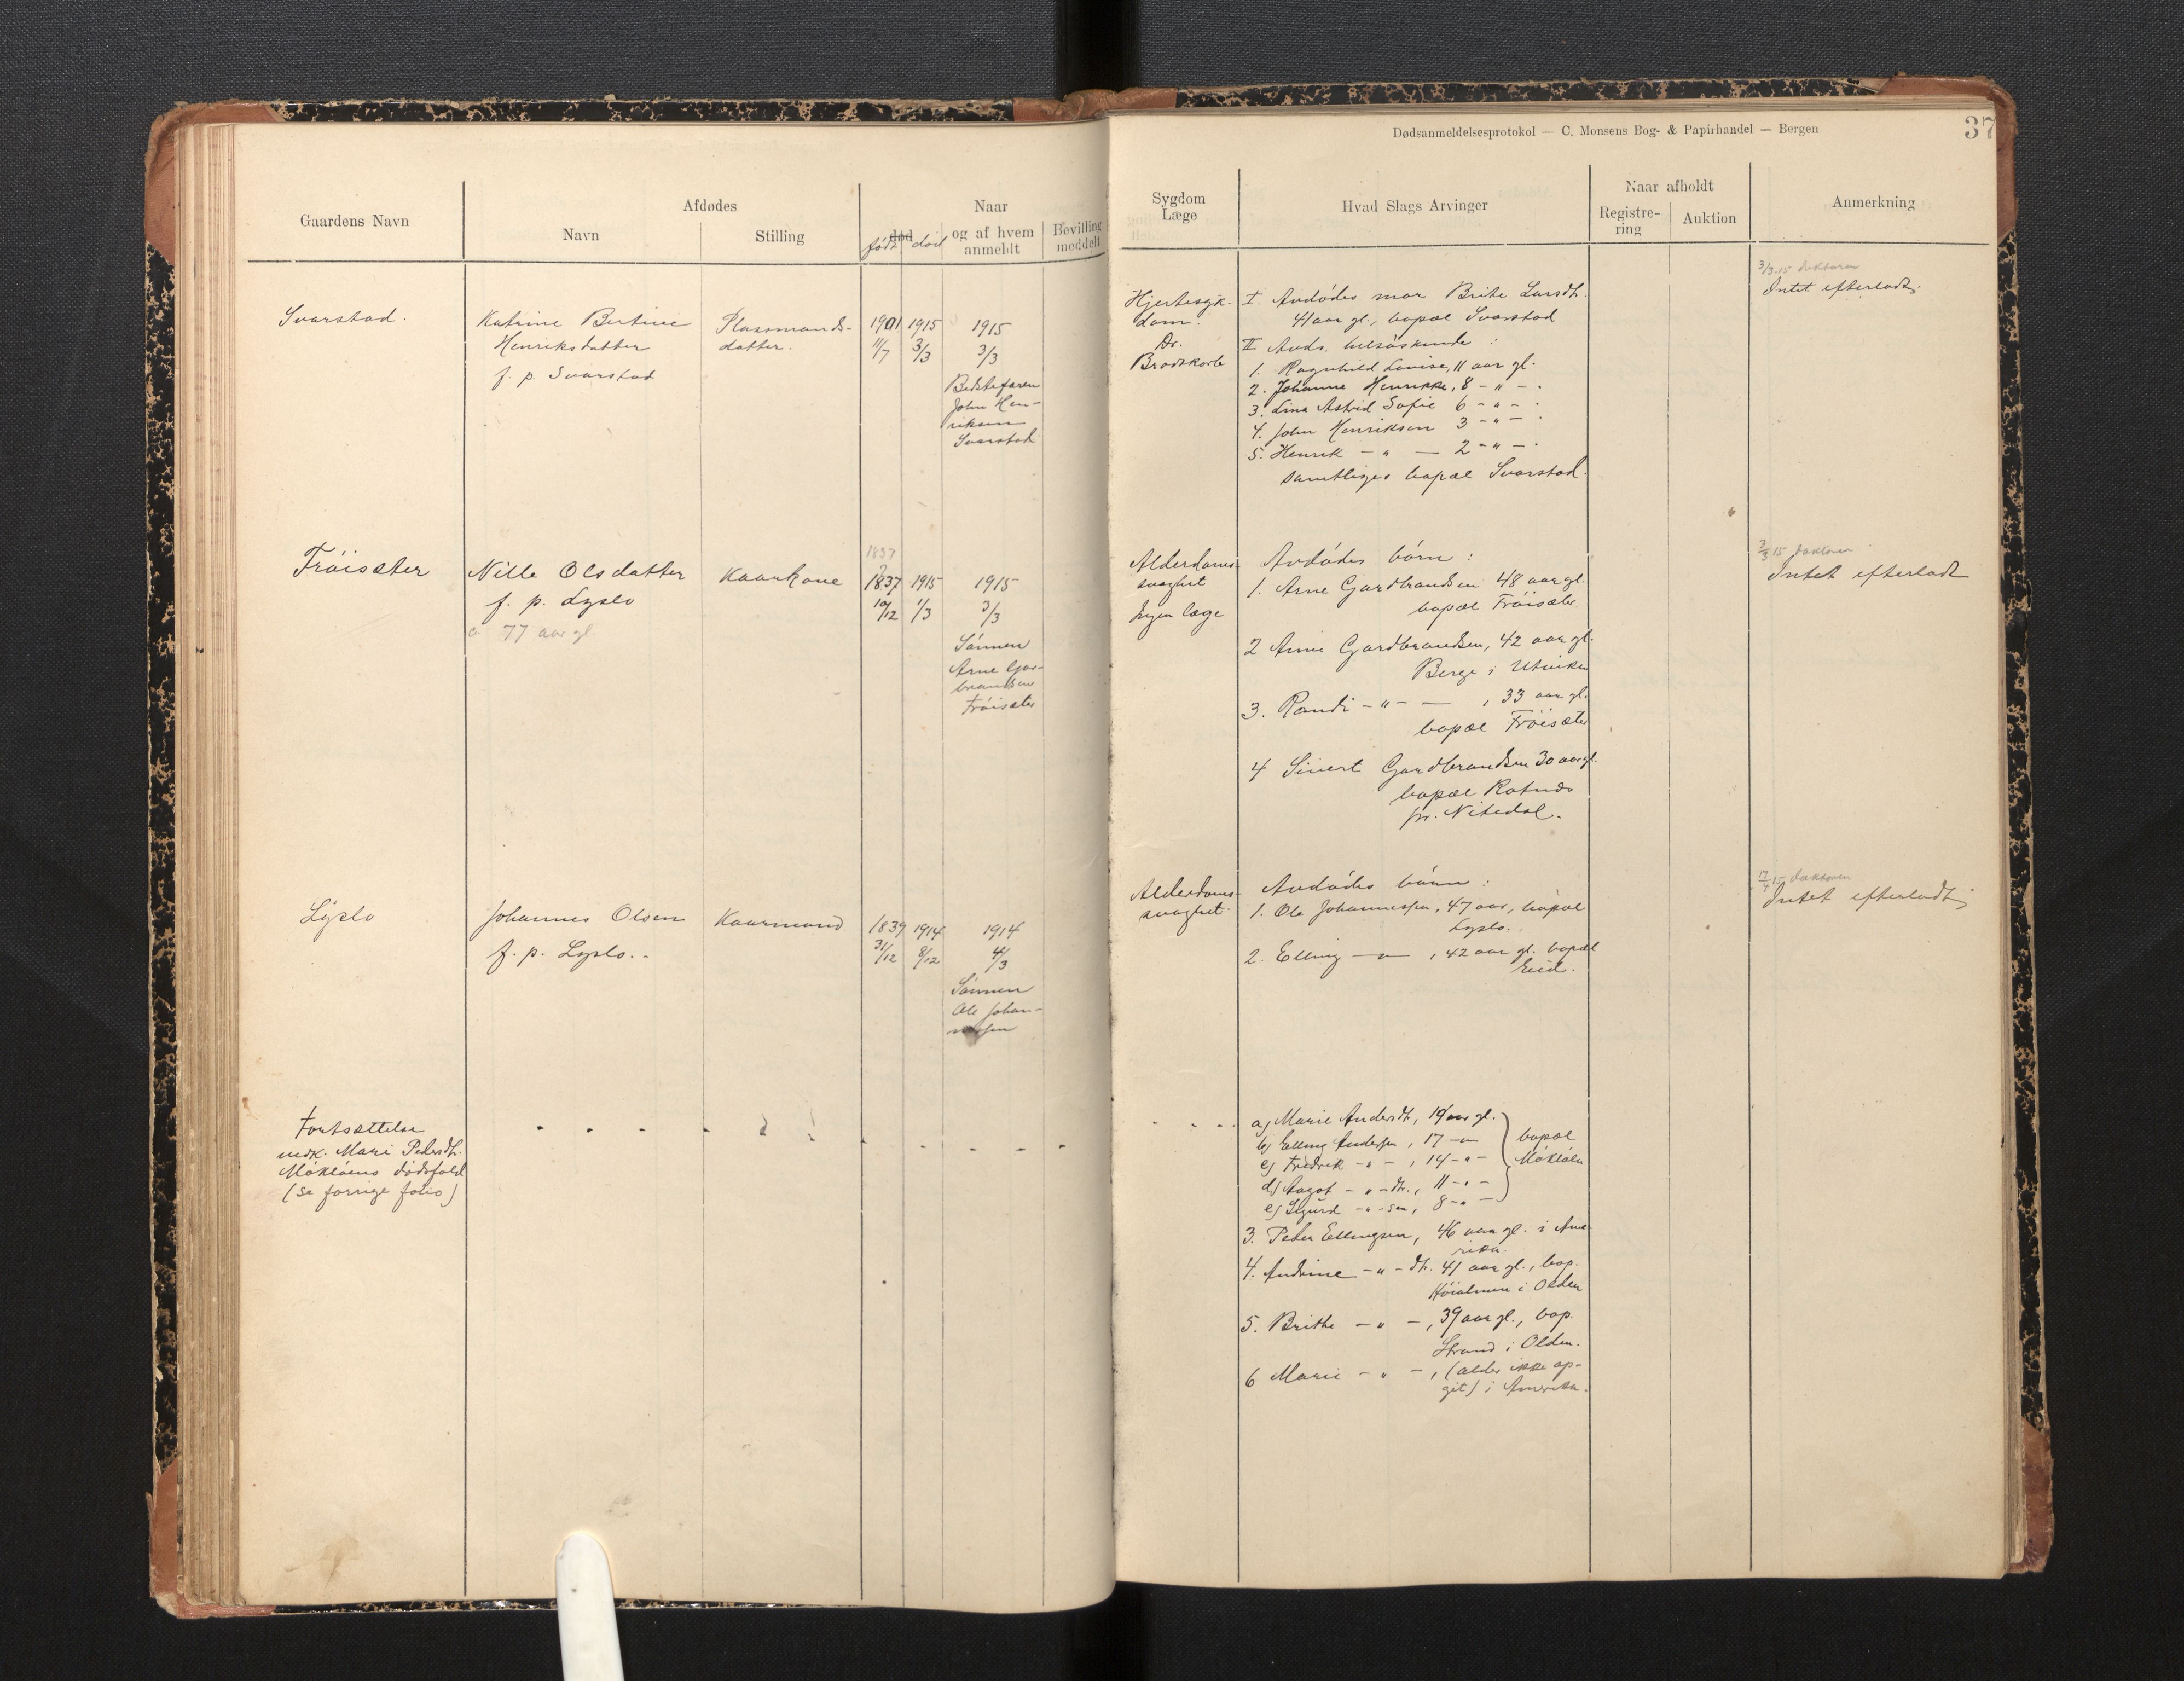 Dødsanmeldelsesprotokol — C. Monsens Bog- & Papirhandel — Bergen
37
Gaardens Navn
Afdødes
Navn
Stilling
Naar
død
født død
og af hvem
anmeldt
Bevilling
meddelt
Sygdom
Læge
Hvad Slags Arvinger
Naar afholdt
Registre-
ring
Auktion
Anmerkning
Svarstad.
Katrine Bertine
Henriksdatter
f. p. Svarstad
Plassmands-
datter.
1901 1915 1915
11/7 3/3 3/3
Bedstefaren
John Hen-
riksen
Svarstad
Hjertesyk-
dom.
Dr.
Brodtkorb
I Avdødes mor Brite Larsdtr.
41 aar gl., bopæl Svarstad
II Avds. helsøskende :
1. Ragnhild Lovise, 11 aar gl.
2. Johanne Henrikke, 8 - " - .
3. Lina Astrid Sofie 6 - " - .
4. John Henriksen 3 - " - .
5. Henrik - " - 2 - " - .
samtliges bopæl Svarstad.
3/3.15 doktoren
Intet efterladt.
Frøisæter
Nille Olsdatter
f. p. Lyslo
77 aar gl.
Kaarkone
1837
?
1837 1915 1915
10/12 1/3 3/3
Sønnen
Arne Gar-
brandsen
Frøisæter
Alderdoms-
svaghet
Ingen læge
Avdødes børn :
1. Arne Gardbrandsen 48 aar gl.
bopæl Frøisæter.
2 Anne Gardbrandsen, 42 aar gl.
Berge i Utviken
3. Randi - " - — , 33 aar gl.
bopæl Frøisæter
4 Sivert Gardbrandsen 30 aar gl.
bopæl Rotnes
pr. Nitedal.
3/3 15 doktoren
Intet efterladt
Lyslo
Johannes Olsen
f. p. Lyslo..
Kaarmand
1839 1914 1914
31/12 8/12 4/3
Sønnen
Ole Johan-
nessen
Alderdoms-
svaghet.
Avdødes børn :
1. Ole Johannessen, 47 aar, bopæl
Lyslo.
2. Elling — " — , 42 aar gl. bopæl
Eid.
17/4 15 doktoren
Intet efterladt
Fortsættelse
vedk. Mari Pedersdtr.
Mökløens dødsfald
(se forrige folio)
a) Marie Andersdtr, 19 aar gl.
b) Elling Andersen, 17 - " -
c) Fredrik - " - , 14 - " -
d) Aagot - " - dtr., 11 - " -
e) Sigurd - " - sen, 8 - " -
bopæl
Mökløen
3. Peder Ellingsen, 46 aar gl. i Ame-
rika.
4. Andrine - " - dtr. 41 aar gl., bop.
Höialmen i Olden
5. Brithe - " - , 39 aar gl., bop.
Strand i Olden.
6 Marie - " - , (alder ikke op-
git) i Amerika.